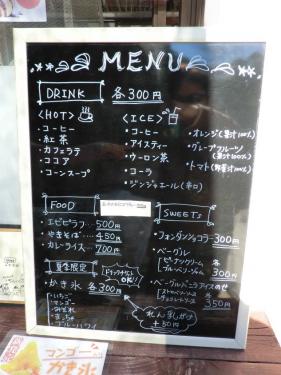 MENU
DRINK 各300円
<HOT>
・コーヒー
・紅茶
・カフェラテ
・ココア
・コーンスープ
<ICE>
・コーヒー
・アイスティー
・ウーロン茶
・コーラ
・ジンジャエール(辛口)
・オレンジ(果汁100%)
・グレープフルーツ
(果汁100%)
・トマト(野菜汁100%)
FOOD
・エビピラフ… 500円
・やきそば… 450円
・カレーライス… 700円
SWEETS
・フォンダンショコラ… 300円
・ベーグル
ピーナッツクリーム
ブルーベリージャム
300円
・ベーグルバニラアイスのせ
ストロベリーソース
チョコレートソース
350円
夏季限定
・かき氷 各300円
・いちご
・マンゴー
・みぞれ
・まっ茶
・ブルーハワイ
れん乳がけ
+50円
コンゴー
かき氷